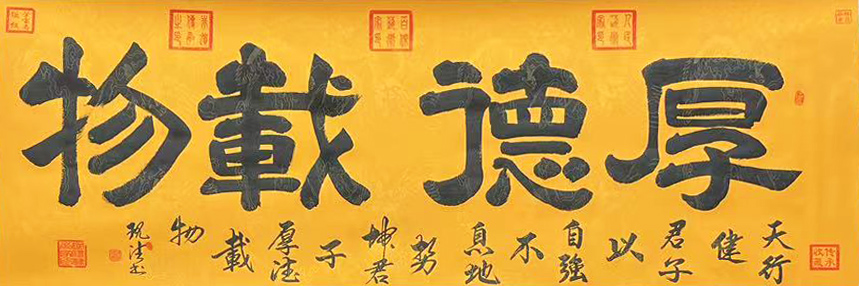 厚德載物
天行
健
君子
以
自強
不
息地
勢
坤君
子
厚德
載
物